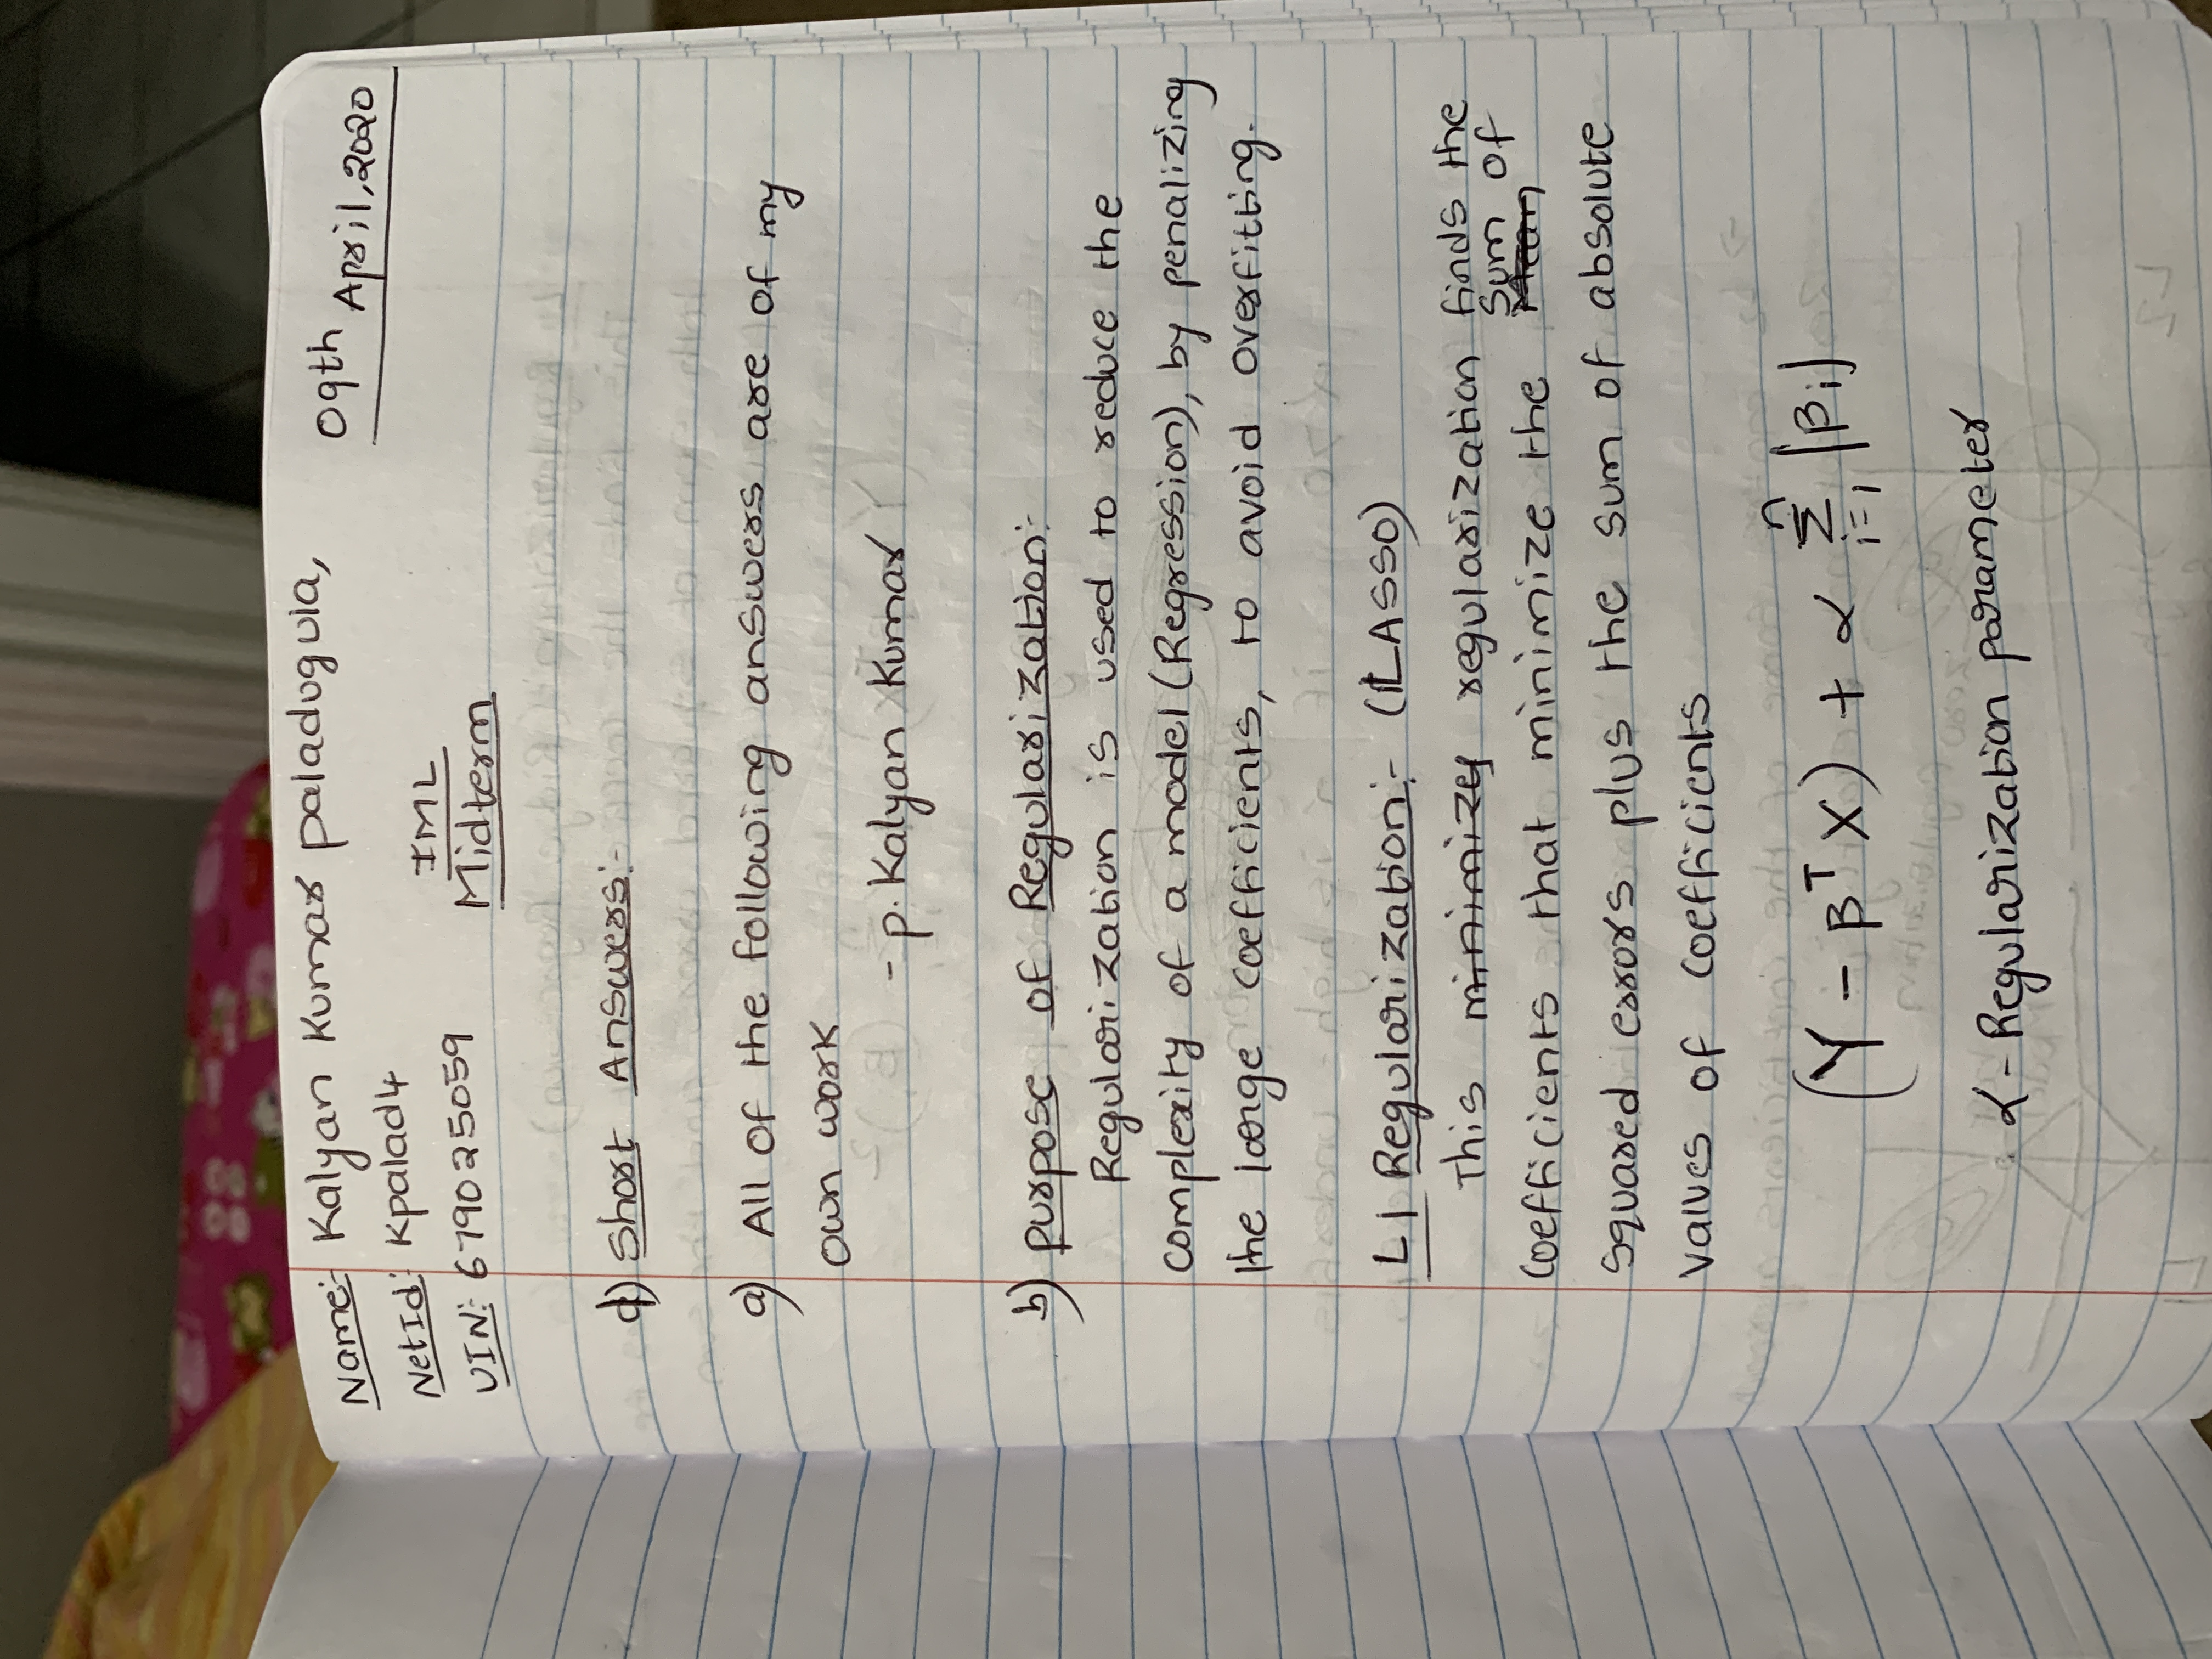 Name:- Kalyan Kumar paladugula,
09th April, 2020
NetId:- Kpalad4
UIN:- 679025059
IML
Midterm
d) Short Answers:-
a) All of the following answers are of my
own work
- p. Kalyan Kumar
b) purpose of Regularization:-
Regularization is used to reduce the
complexity of a model (Regression), by penalizing
the large coefficients, to avoid overfitting.
L1 Regularization:- (LASSO)
This minimizes regularization finds the
Sum of
coefficients that minimize the Mean
squared errors plus the sum of absolute
values of coefficients
(Y - βᵀX) + α Σⁿᵢ₌₁ |βᵢ|
α - Regularization parameter